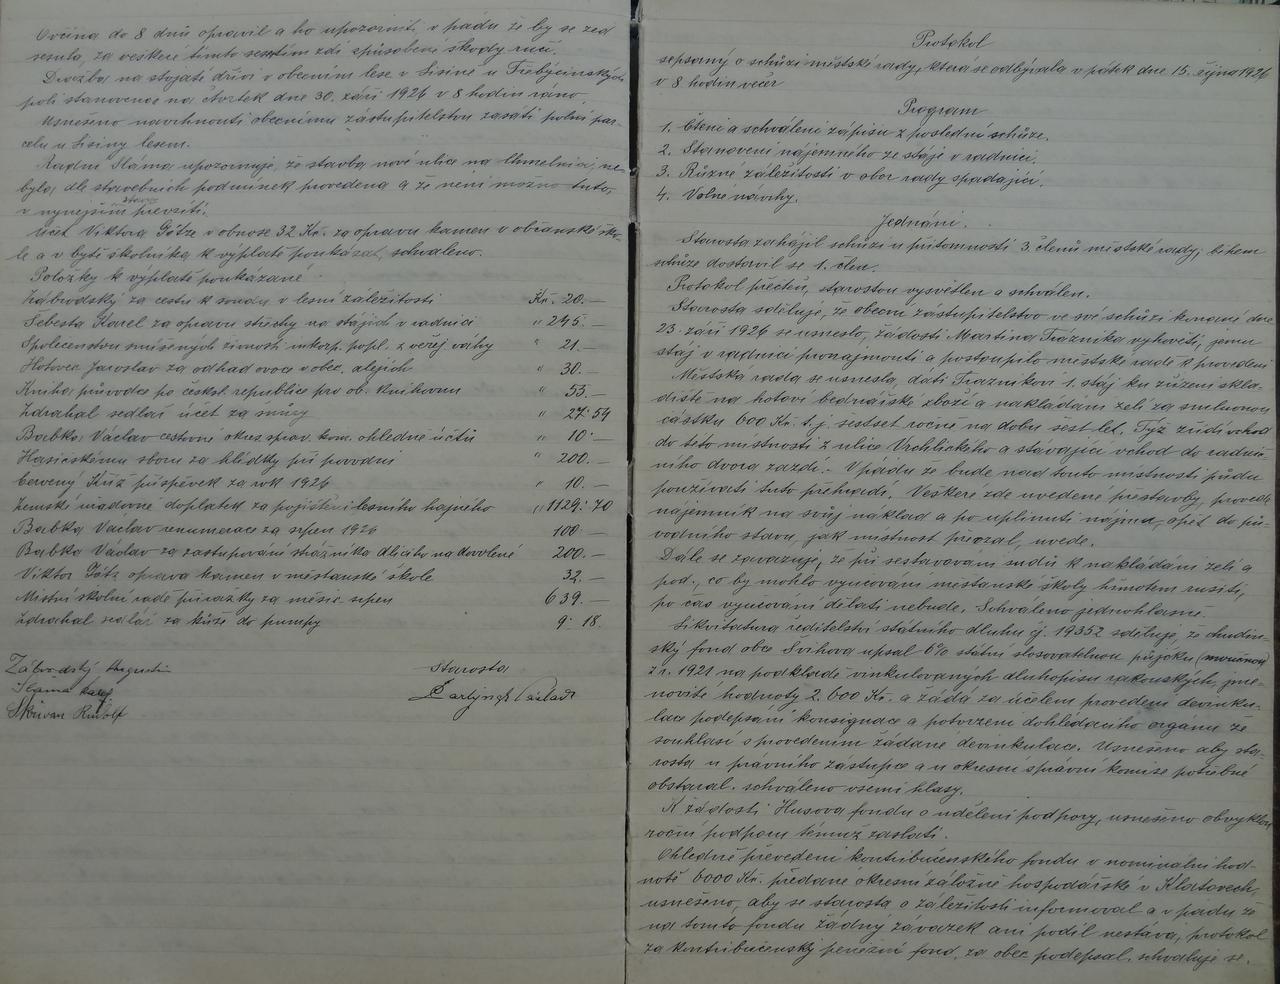 Ovčína do 8 dnů opravil a ho upozorniti v pádu že by se zeď
sesula, za veškeré tímto sesutím zdi způsobené škody ručí.
Dražba na stojaté dříví v obecním lese v Lisině u Třebýcinských
polí stanovena na čtvrtek dne 30. září 1926 v 8 hodin ráno.
Usneseno navrhnouti obecnímu zastupitelstvu zasáti polní par-
celu u Lisiny lesem.
Radní Sláma upozorňuje, že stavba nové ulice na Chmelnici, ne-
byla dle stavebních podmínek provedena a že není možno tuto,
v nynejším stavu převzíti.
Účet Viktora Götze v obnose 32 Kč. za opravu kamen v občanské ško-
le a v bytě školníka k výplatě poukázat, schváleno.
Položky k výplatě poukázané:
Zábrodský za cestu k soudu v lesní záležitosti Kč. 20.—
Šebesta Karel za opravu střechy na stájích v radnici " 245.—
Společenstvu smíšených živností inkorp. popl. z veřej. váhy " 21.—
Hotovec Jaroslav za odhad ovoce v obec. alejích " 30.—
Kniha průvodce po českosl. republice pro ob. knihovnu " 55.—
Zdrahal sedlář účet za šnůry " 27.54
Babka Václav cestovné okres. sprav. kom. ohledně účtů " 10.—
Hasičskému sboru za hlídky při povodni " 200.—
Červený Kříž příspěvek za rok 1926 " 10.—
Zemské úřadovně doplatek za pojištění lesního hajného " 1129.70
Babka Václav renumerace za srpen 1926 100.—
Babka Václav za zastupování strážníka dlícího na dovolené 200.—
Viktor Götz oprava kamen v měšťanské škole 32.—
Místní školní radě přirážky za měsíc srpen 639.—
Zdrahal sedlář za kůže do pumpy 9.18.
Zábrodský Augustin
Sláma Karel
Skřivan Rudolf
Starosta
Protokol
sepsaný o schůzi městské rady, která se odbývala v pátek dne 15. října 1926
v 8 hodin večer
Program
1. Čtení a schválení zápisu z poslední schůze.
2. Stanovení nájemného ze stáje v radnici.
3. Různé záležitosti v obor rady spadající.
4. Volné návrhy.
Jednání.
Starosta zahájil schůzi u přítomnosti 3 členů městské rady, během
schůze dostavil se 1. člen.
Protokol přečten, starostou vysvětlen a schválen.
Starosta sděluje, že obecní zastupitelstvo ve své schůzi konané dne
23. září 1926 se usneslo, žádosti Martina Trázníka vyhověti, jemu
stáj v radnici pronajmouti a postoupilo městské radě k provedení
Městská rada se usnesla, dáti Trazníkovi 1. stáj ku zřízení skla-
diště na hotové bednářské zboží a nakládání zelí za smluvenou
částku 600 Kč. t.j. šestset ročně na dobu šest let. Týž zřídí vchod
do této místnosti z ulice Vrchlického a stávající vchod do radnič-
ního dvora zazdí. V pádu že bude nad touto místností půdu
používati tuto přehradí. Veškeré zde uvedené přestavby, provede
nájemník na svůj náklad a po uplinutí nájmu, opět do pů-
vodního stavu, jak místnost převzal, uvede.
Dále se zavazuje, že při sestavování sudů k nakládání zelí a
pod., co by mohlo vyučování měšťanské školy hmotem rušiti,
po čas vyučování dělati nebude. Schváleno jednohlasně.
Likvitatura ředitelství státního dluhu čj. 19352 sděluje, že chudin-
ský fond obce Švihova upsal 6% státní slosovatelnou půjčku (movčnou)
z r. 1921 na podkladě vinkulovaných dluhopisů rakouských, jme-
novité hodnoty 2.600 Kč. a žádá za účelem provedení devinku-
lace podepsání konsignace a potvrzení dohledacího orgánu že
souhlasí s provedením žádané devinkulace. Usneseno aby sta-
rosta u právního zástupce a u okresní správní komise potřebné
obstaral. schváleno všemi hlasy.
K žádosti Husova fondu o udělení podpory, usneseno obvyklou
roční podporu témuž zaslati.
Ohledně převedení kontribučenského fondu v nominalní hod-
notě 6000 Kč. předané okresní záložně hospodářské v Klatovech,
usneseno, aby se starosta o záležitosti informoval a v pádu že
na tomto fondu žádný závazek ani podíl nestává, protokol
za kontribučenský peněžní fond, za obec podepsal. schvaluje se.